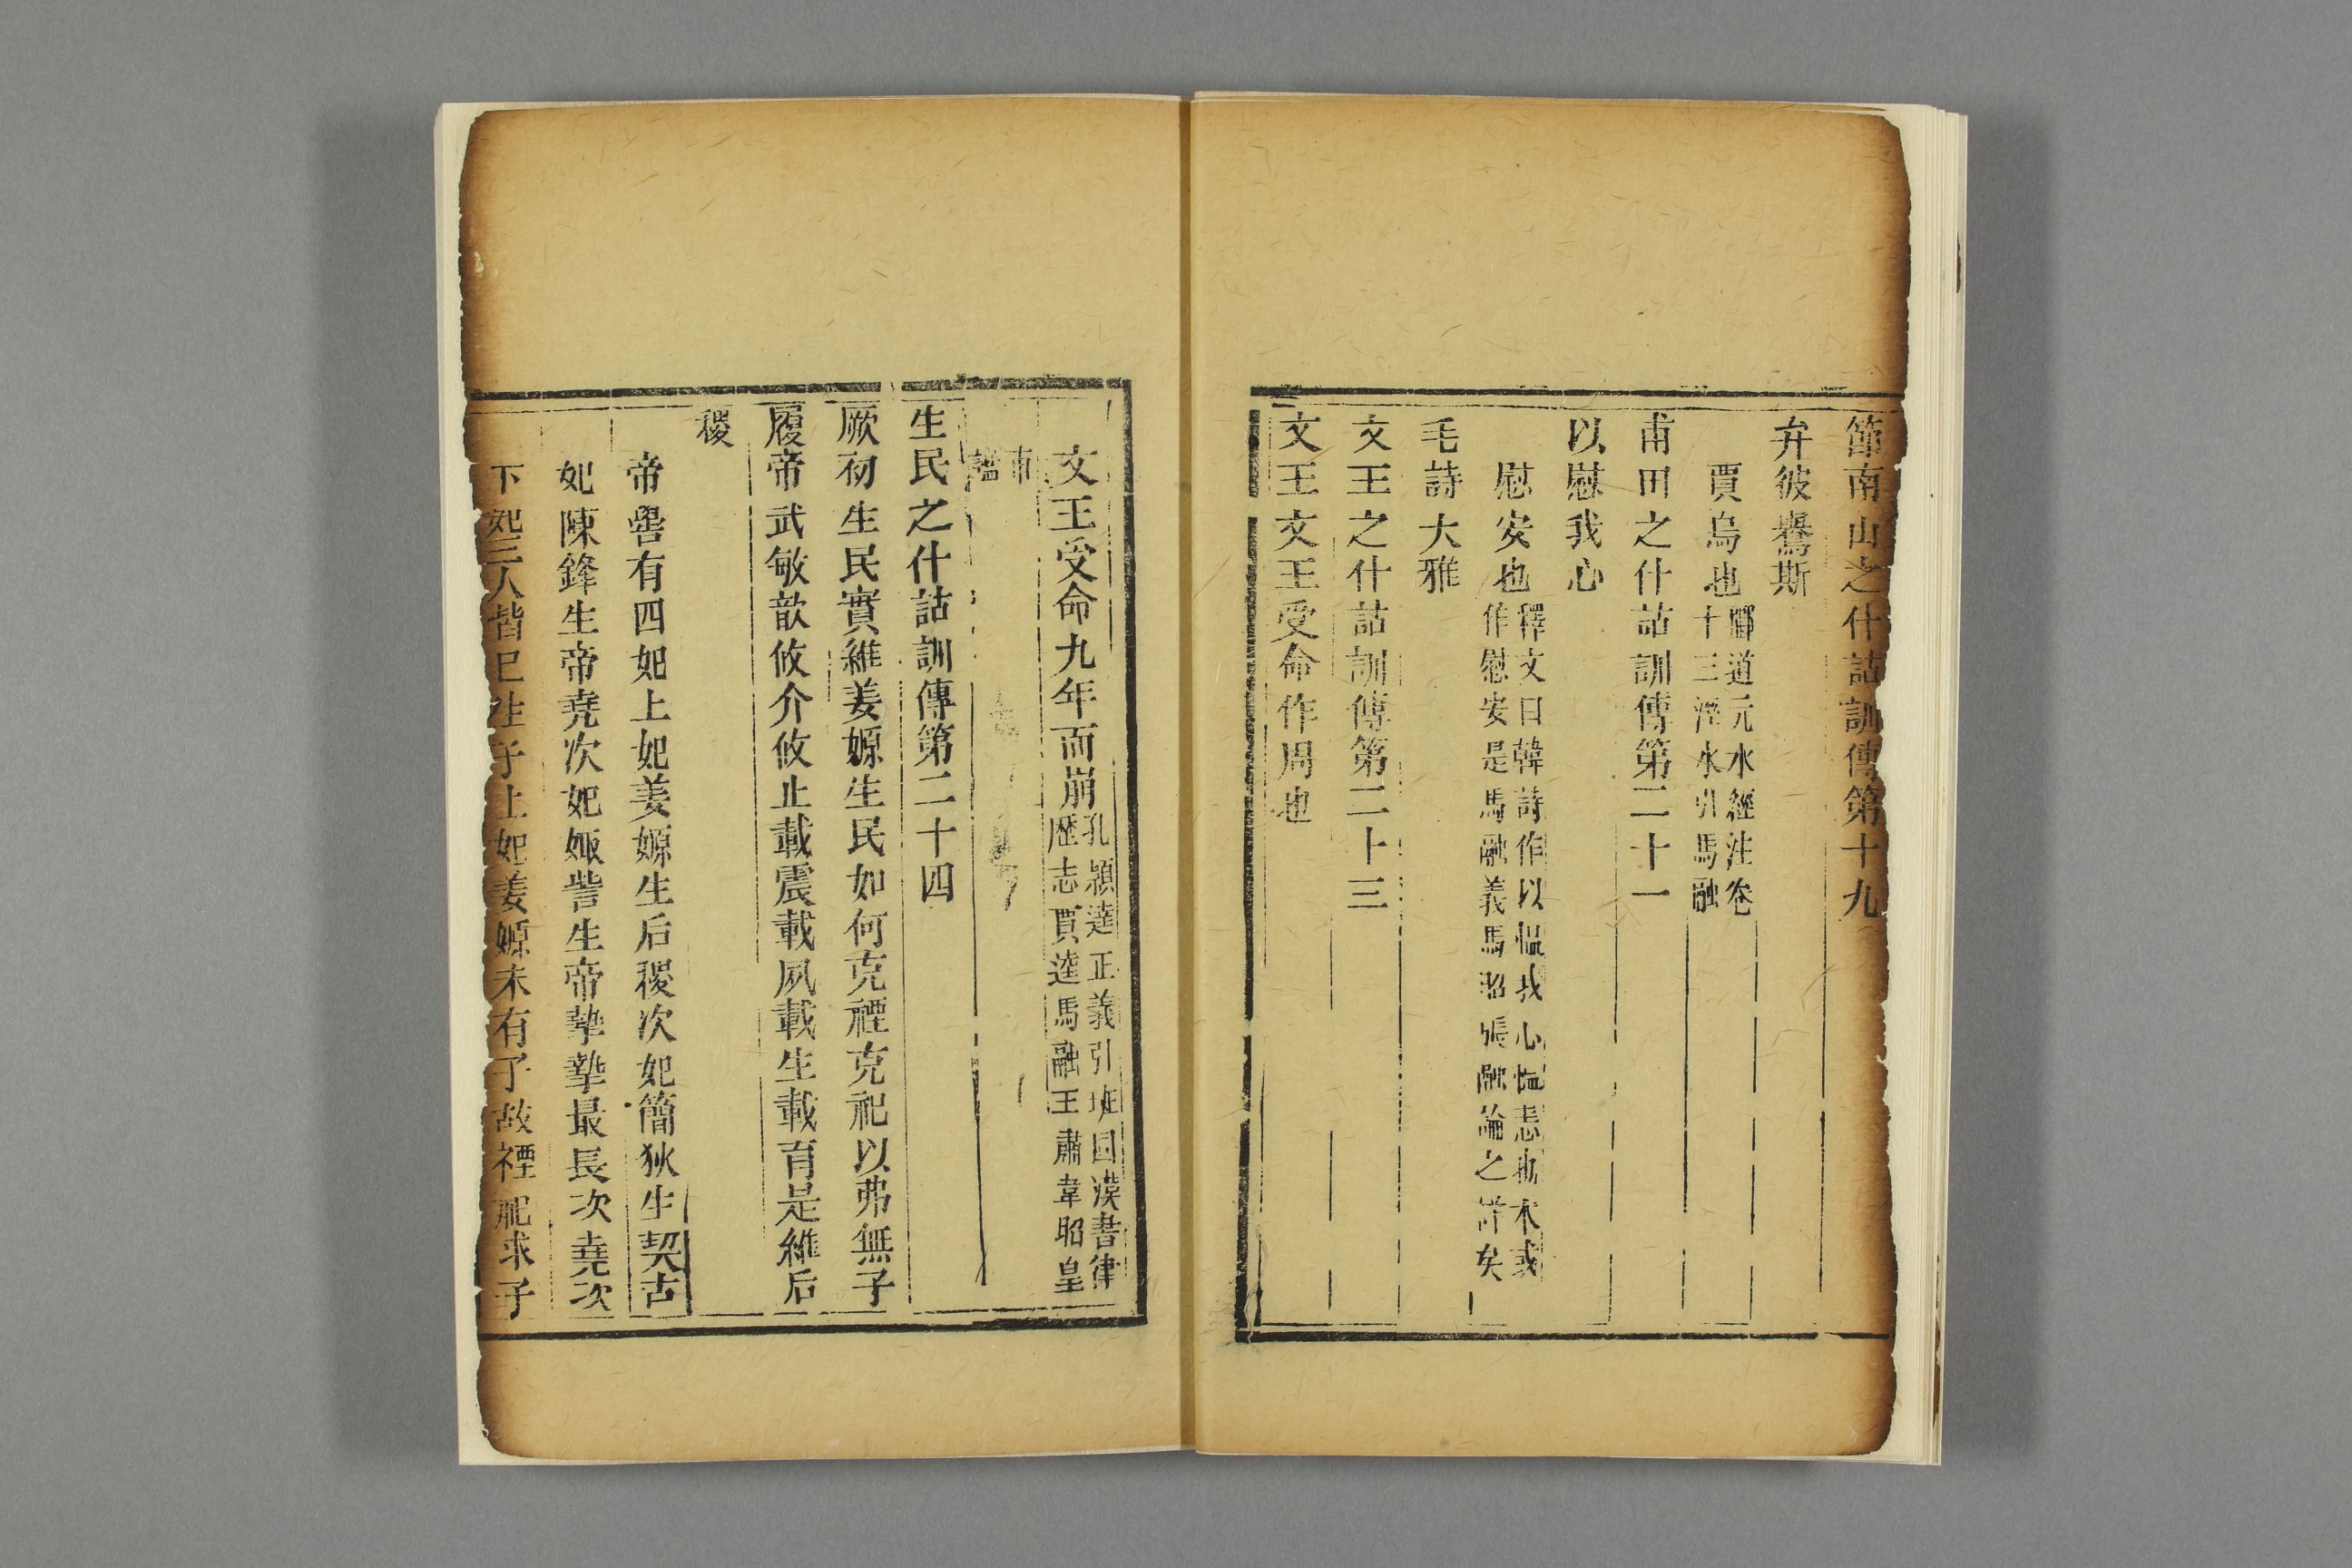 節南山之什詁訓傳第十九
弁彼鸒斯
賈烏也酈道元水經注卷
十三㶟水引馬融
甫田之什詁訓傳第二十一
以慰我心
慰安也釋文曰韓詩作以慍我心慍恚也本或
作慰安是馬融義馬昭張融論之詳矣
毛詩大雅
文王之什詁訓傳第二十三
文王文王受命作周也
文王受命九年而崩孔穎達正義引班固漢書律
歷志賈逵馬融王肅韋昭皇
甫
謐
生民之什詁訓傳第二十四
厥初生民實維姜嫄生民如何克禋克祀以弗無子
履帝武敏歆攸介攸止載震載夙載生載育是維后
稷
帝嚳有四妃上妃姜嫄生后稷次妃簡狄生契古
妃陳鋒生帝堯次妃娵訾生帝摯摯最長次堯次
下妃三人皆已生子上妃姜嫄未有子故禋祀求子